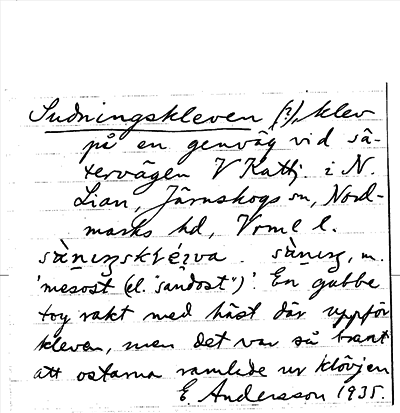 Sudningskleven (?), klev
på en genväg vid sä-
tervägen V Kattj. i N.
Lian, Järnskogs sn, Nord-
marks hd, Vrml l.
sàneŋskléva. sàneŋ, m.
'mesost (el. "sandost")'. En gubbe
tog rakt med häst där uppför
kleven, men det var så brant
att ostarna ramlade ur klövjen
E. Andersson 1935.